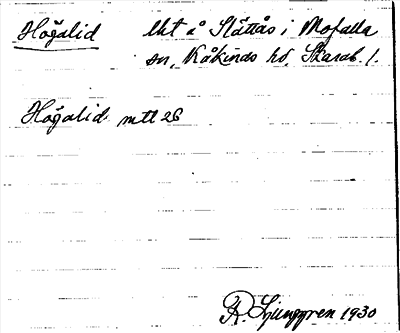 Högalid lht å Slättås i Mofalla
sn, Kåkinds hd, Skarab. l.
Högalid mtl 26
R. Ljunggren 1930